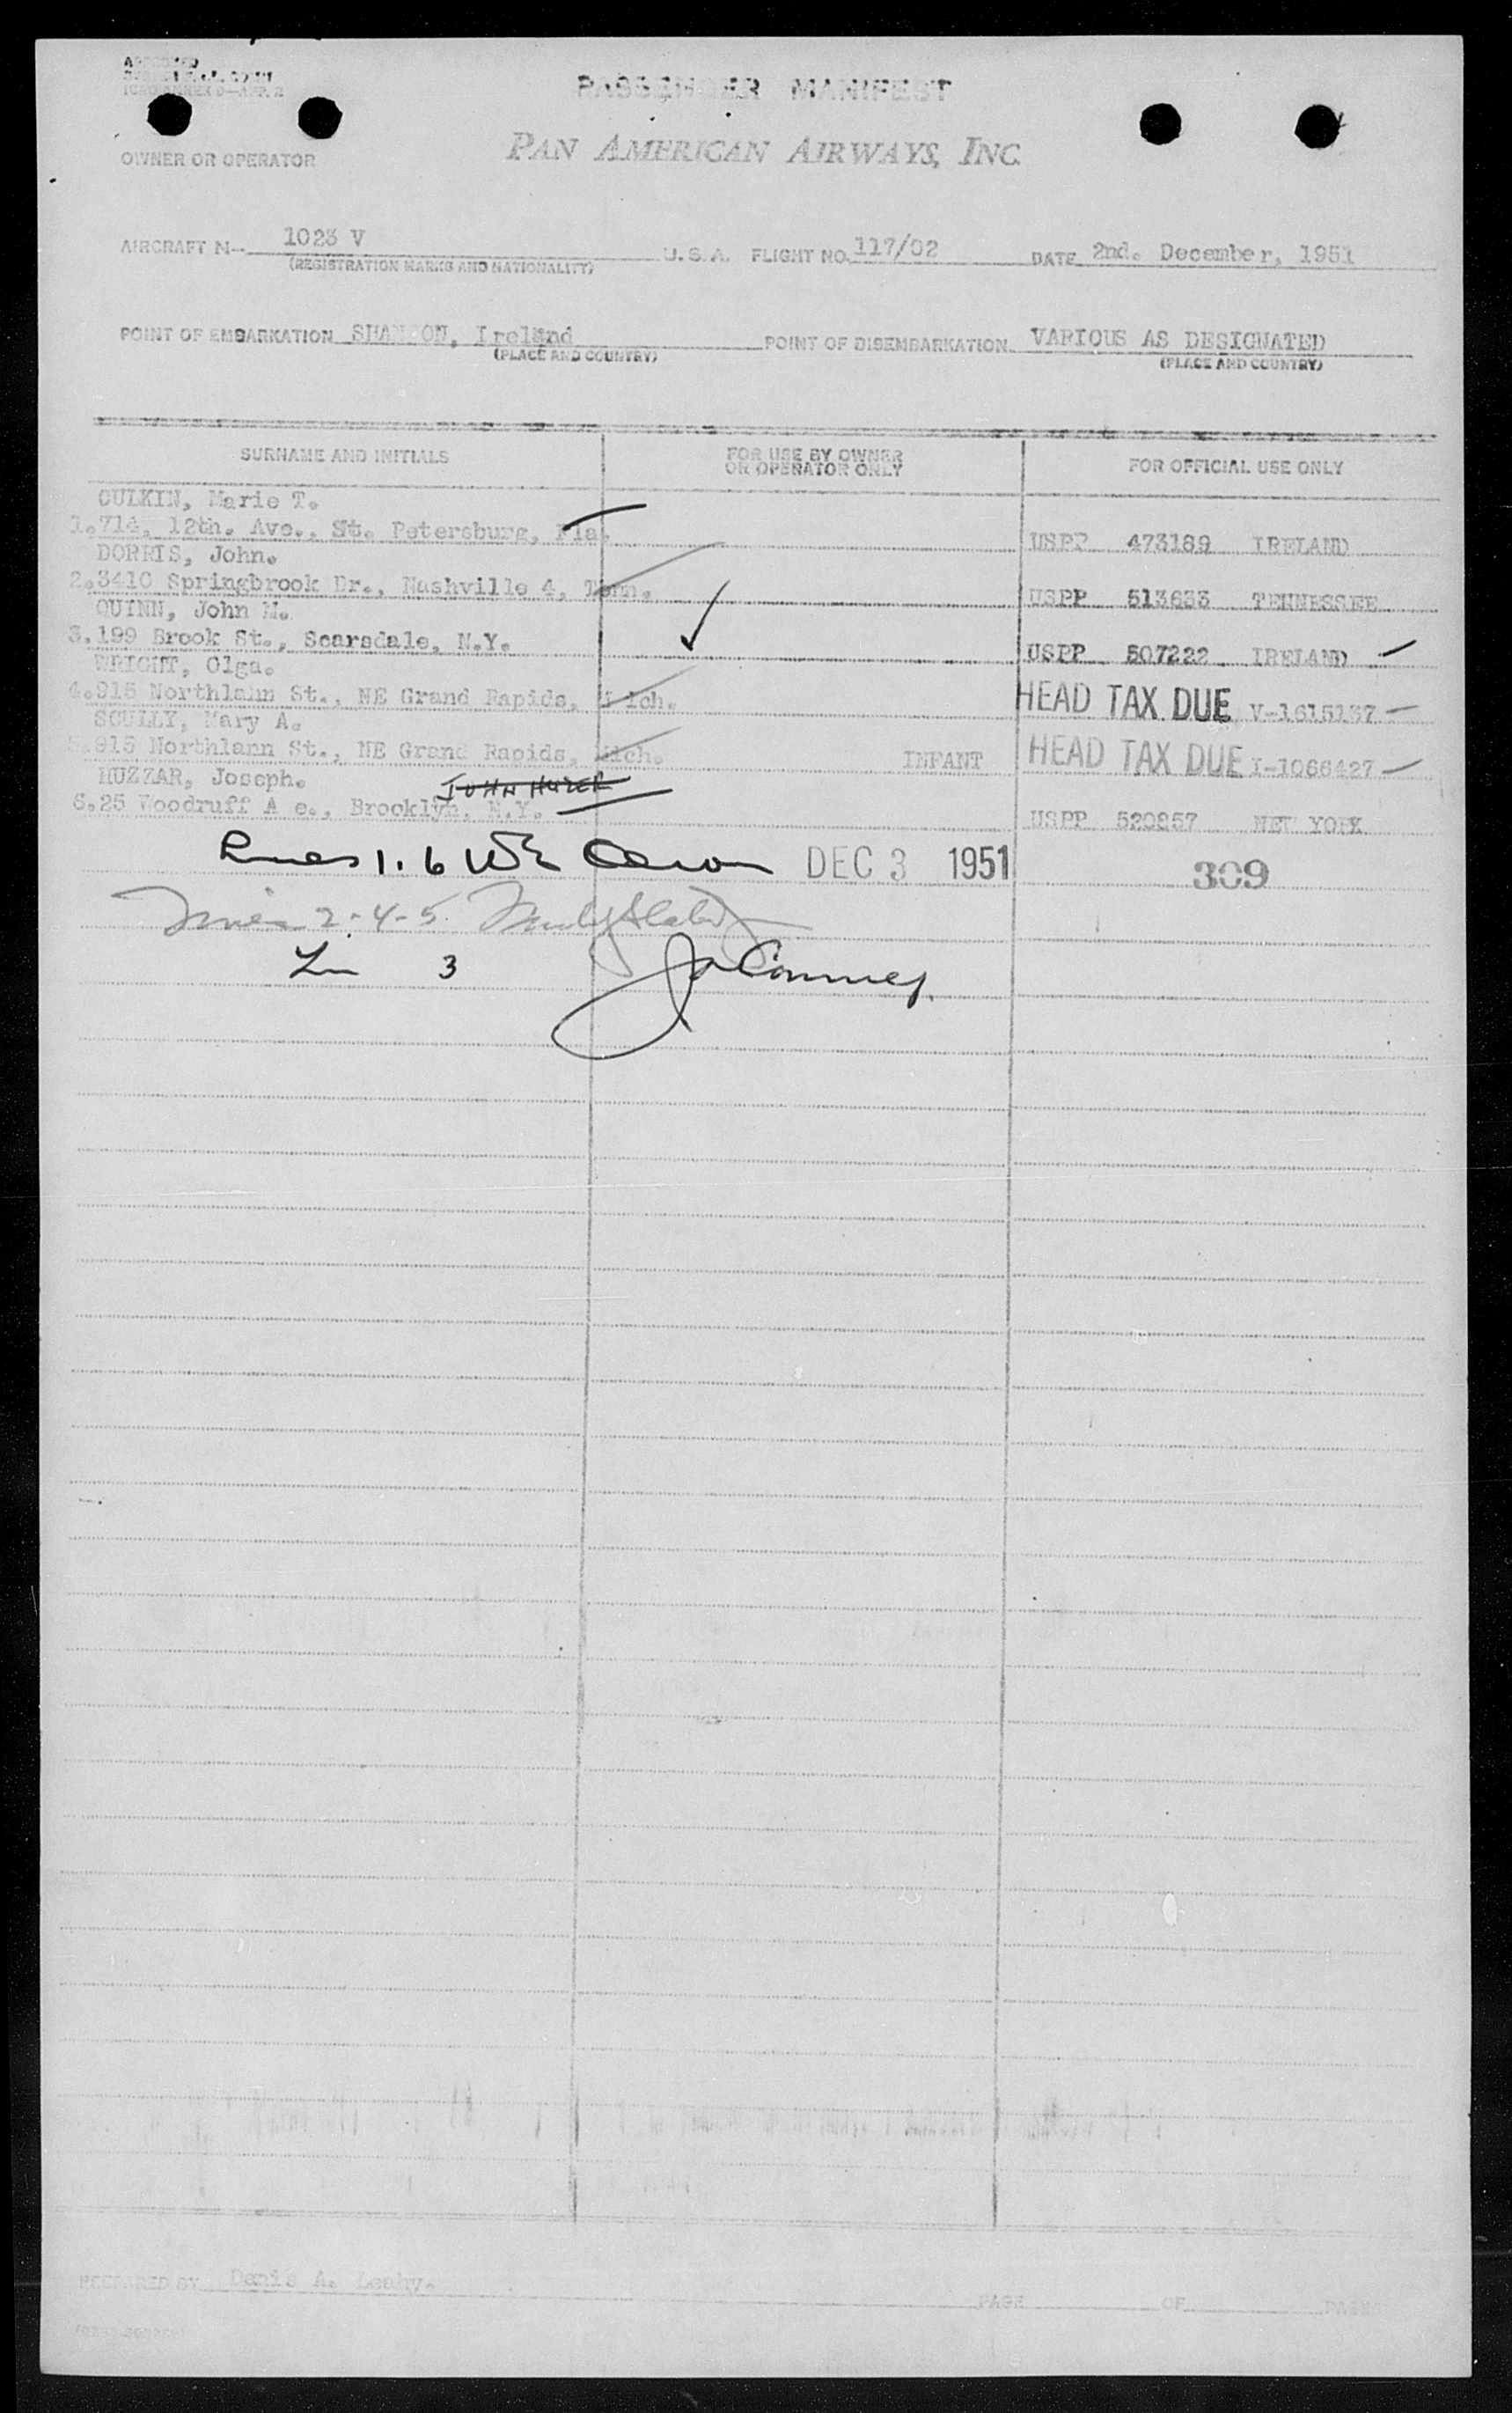 APPROVED
PASSENGER MANIFEST
PAN AMERICAN AIRWAYS, INC.
OWNER OR OPERATOR
AIRCRAFT N-- 1023 V U.S.A. FLIGHT NO. 117/02 DATE 2nd. December, 1951
(REGISTRATION MARKS AND NATIONALITY)
POINT OF EMBARKATION SHANNON, Ireland POINT OF DISEMBARKATION VARIOUS AS DESIGNATED
(PLACE AND COUNTRY) (PLACE AND COUNTRY)
SURNAME AND INITIALS FOR USE BY OWNER OR OPERATOR ONLY FOR OFFICIAL USE ONLY
CULKIN, Marie T.
1.714, 12th. Ave., St. Petersburg, Fla. USPP 473189 IRELAND
DORRIS, John.
2.3410 Springbrook Dr., Nashville 4, Tenn. USPP 513633 TENNESSEE
QUINN, John M.
3.199 Brook St., Scarsdale, N.Y. USPP 507222 IRELAND
WRIGHT, Olga.
4.915 Northlann St., NE Grand Rapids, Mich. HEAD TAX DUE V-1615137
SCULLY, Mary A.
5.915 Northlann St., NE Grand Rapids, Mich. INFANT HEAD TAX DUE I-1066427
HUZZAR, Joseph. JOHN HUZER
6.25 Woodruff A e., Brooklyn, N.Y. USPP 520857 NEW YORK
Lines 1. 6 DEC 3 1951 309
Lines 2-4-5
Lin 3
PREPARED BY Denis A. Leahy.
PAGE OF PAGES